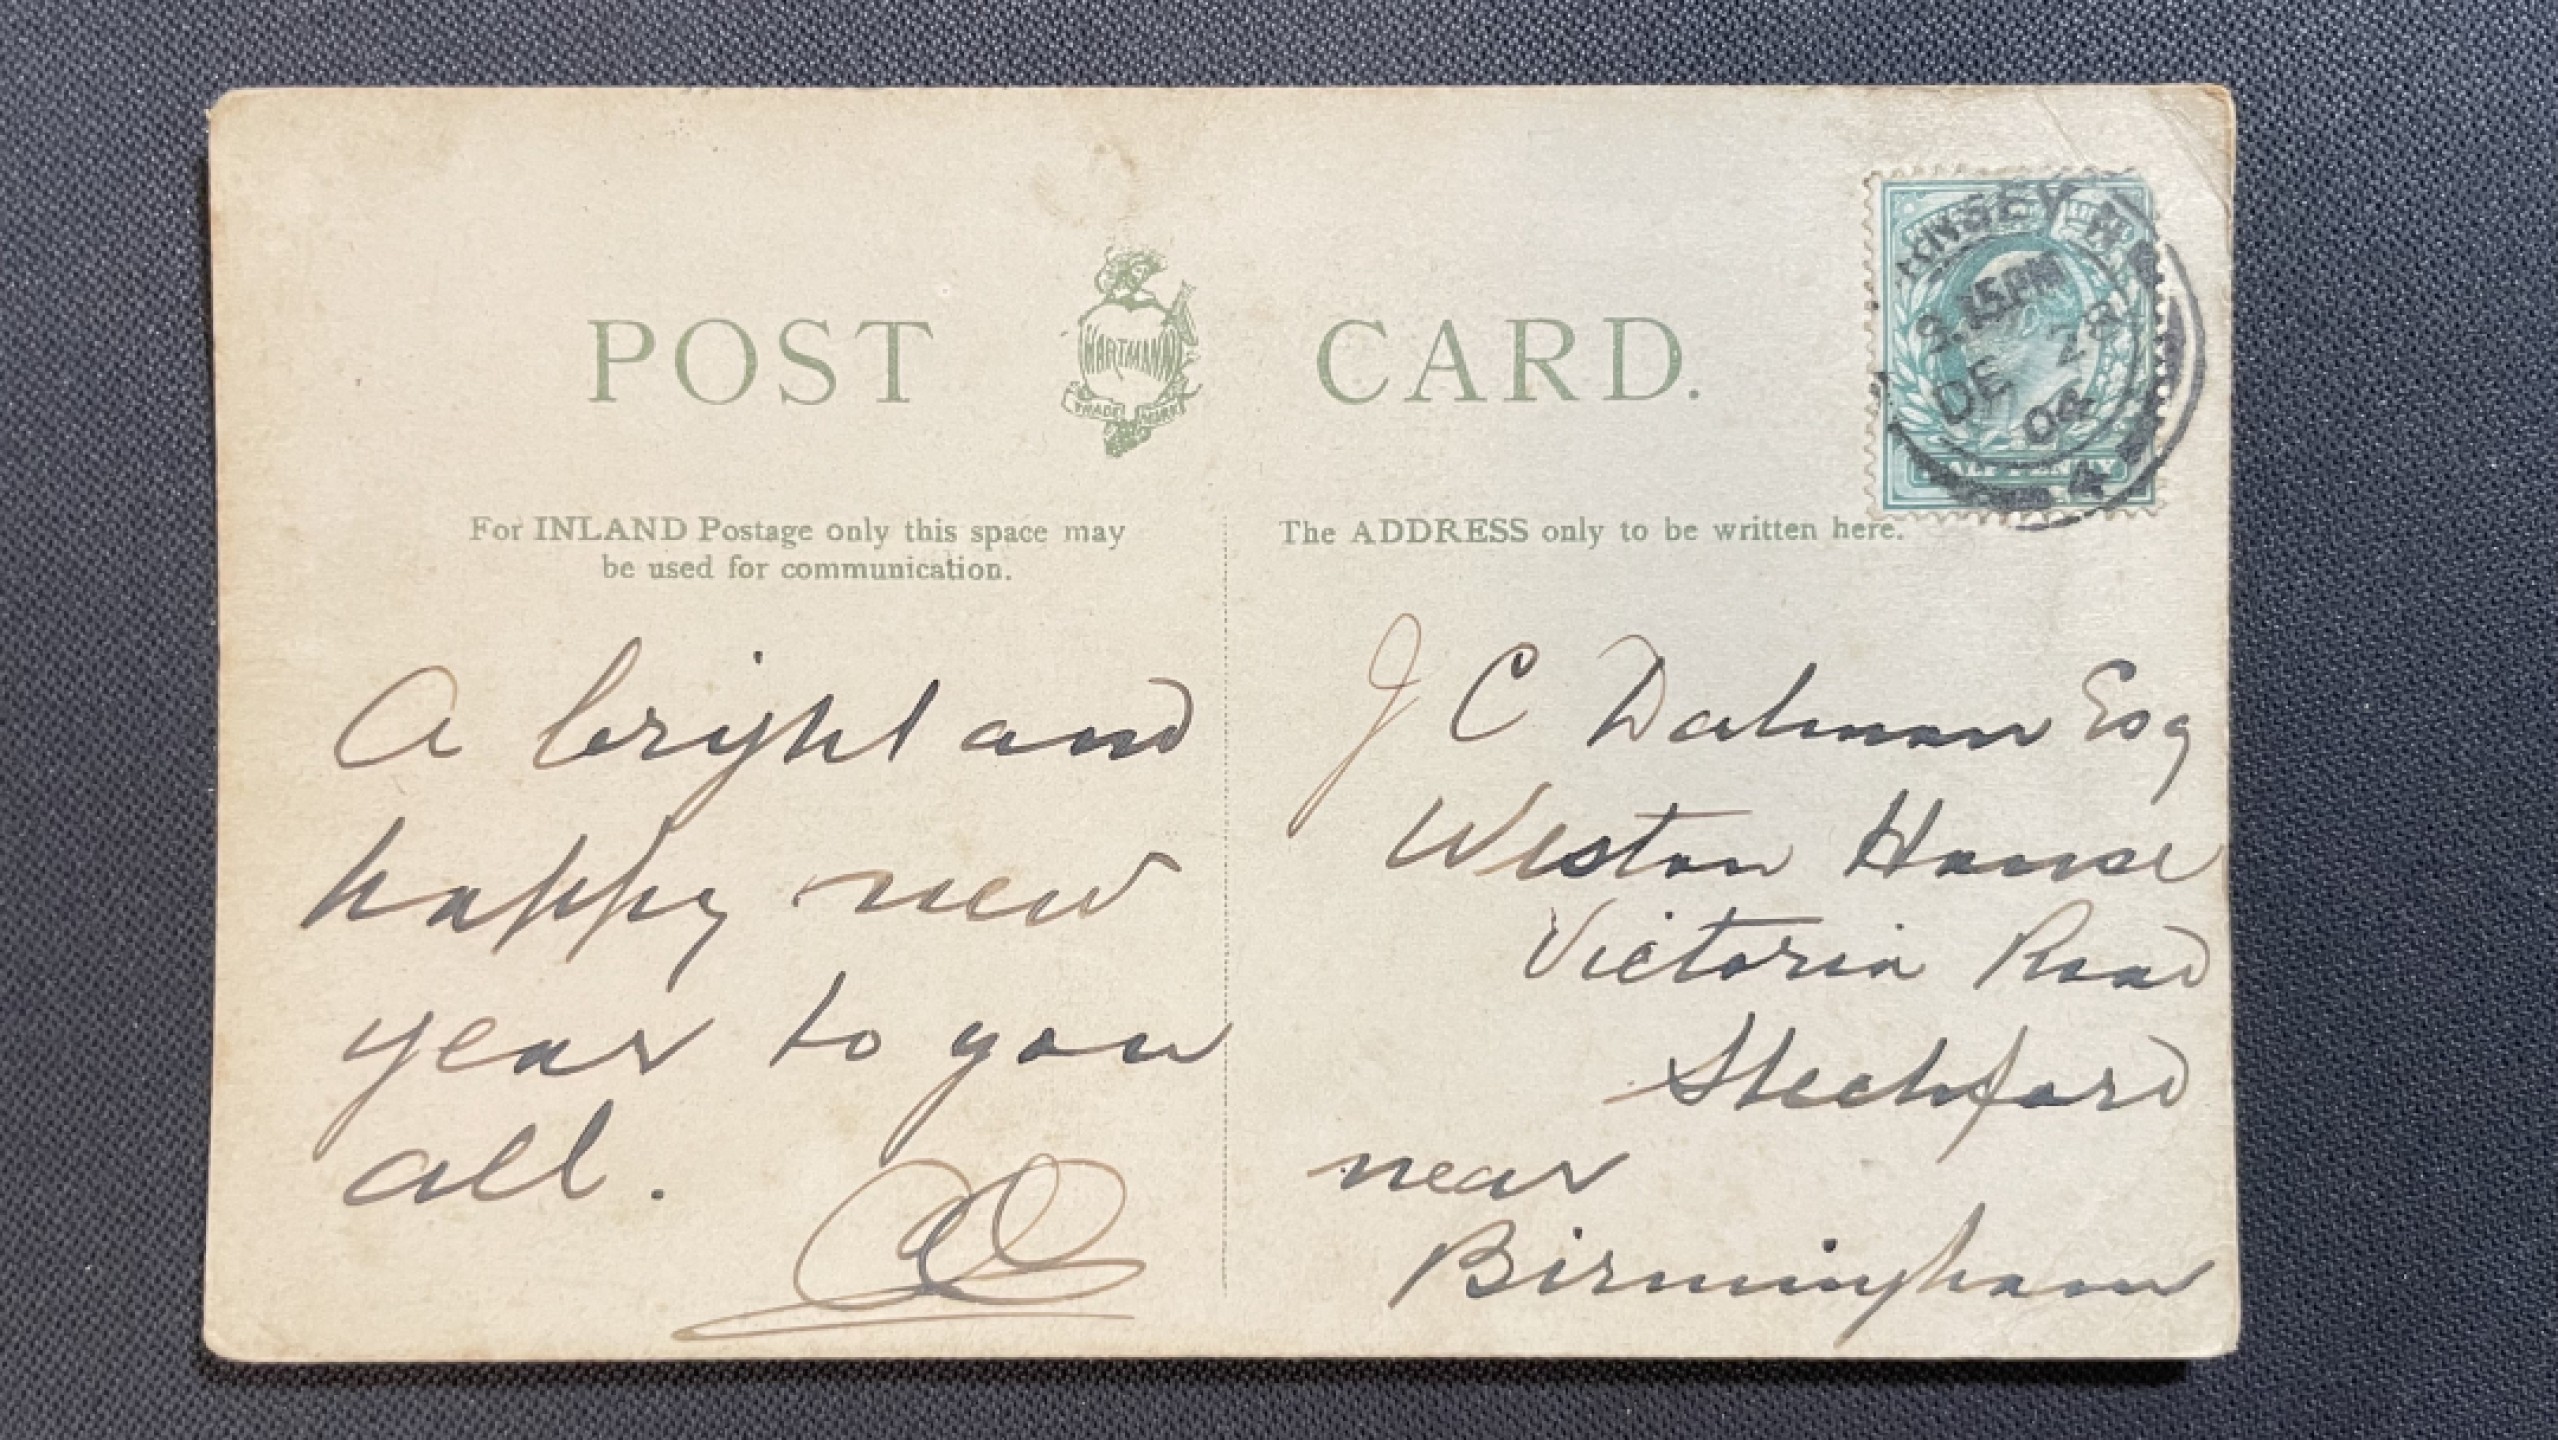 POST CARD.
HARTMANN
TRADE MARK
For INLAND Postage only this space may
be used for communication.
The ADDRESS only to be written here.
RNSEY N
9.45 PM
DE 28
04
4
HALF PENNY
A bright and
happy new
year to you
all.
J C Dalman Esq
Weston House
Victoria Road
Stechford
near
Birmingham